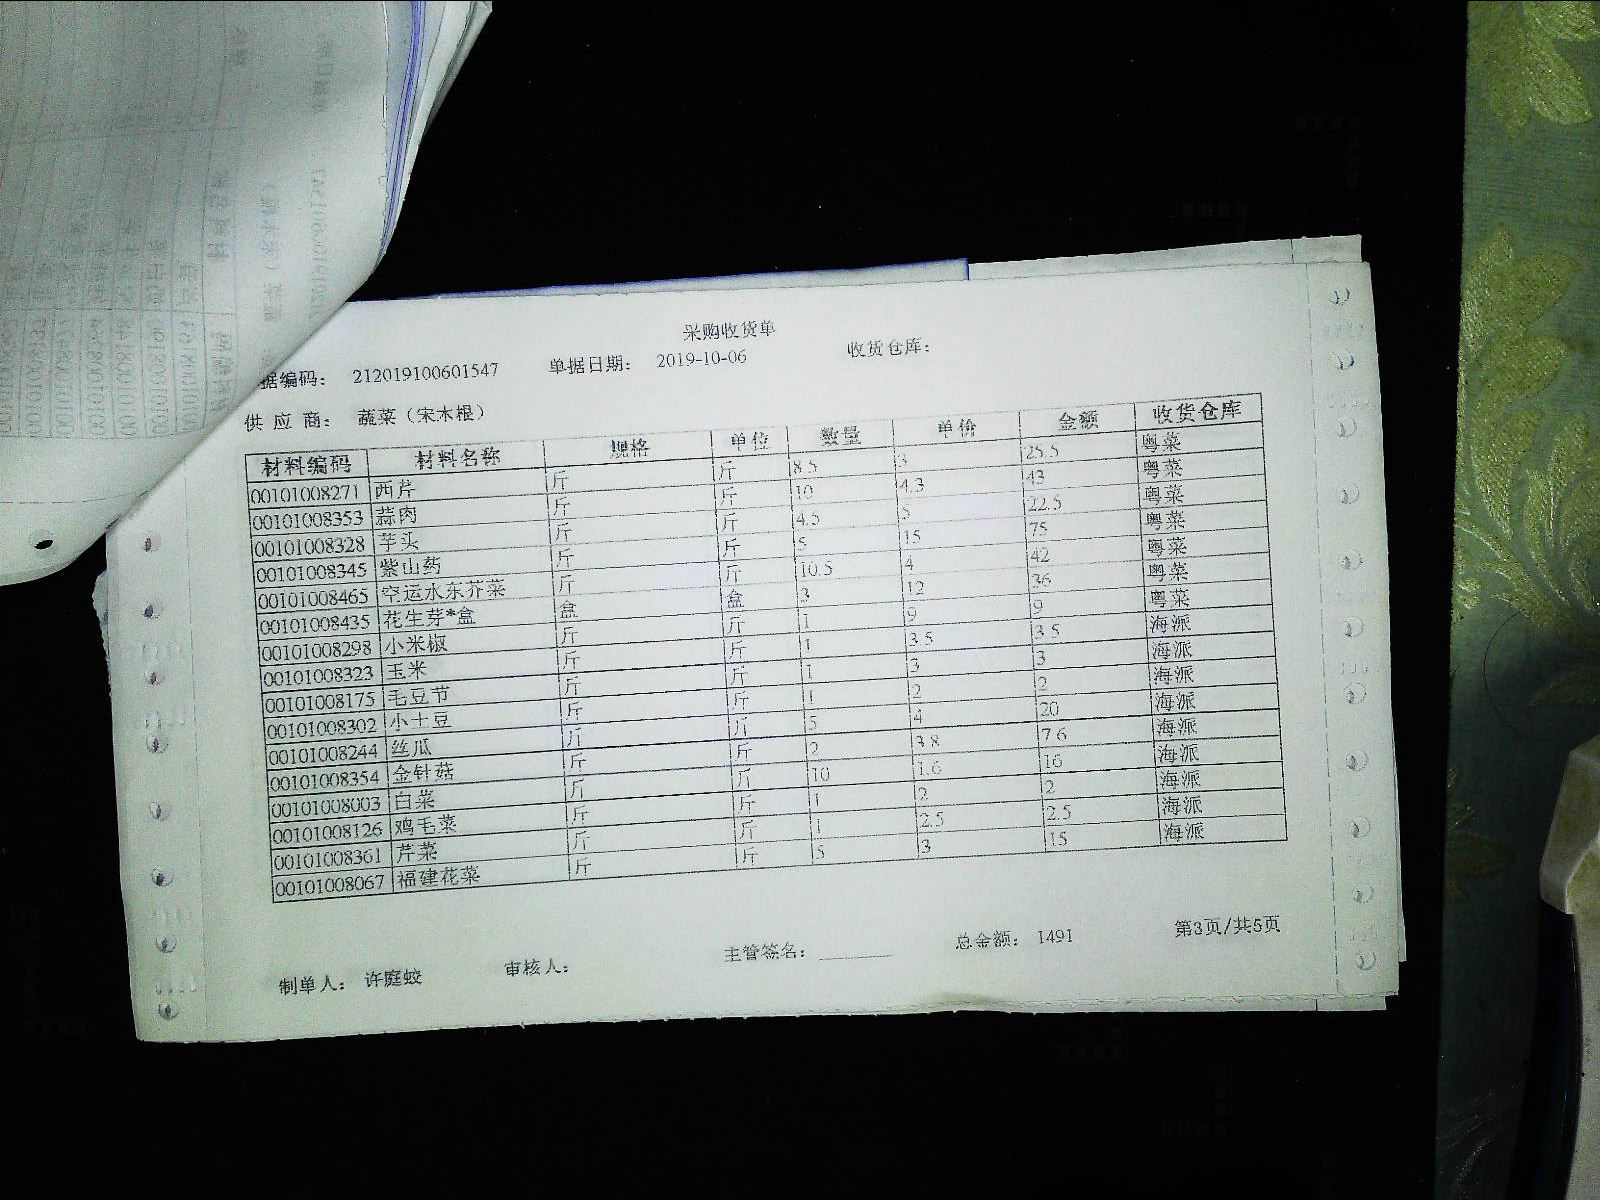 采购收货单
据编码： 212019100601547 单据日期： 2019-10-06 收货仓库：
供 应 商： 蔬菜（宋木根）
材料编码 材料名称 规格 单位 数量 单价 金额 收货仓库
00101008271 西芹 斤 斤 8.5 3 25.5 粤菜
00101008353 蒜肉 斤 斤 10 4.3 43 粤菜
00101008328 芋头 斤 斤 4.5 5 22.5 粤菜
00101008345 紫山药 斤 斤 5 15 75 粤菜
00101008465 空运水东芥菜 斤 斤 10.5 4 42 粤菜
00101008435 花生芽*盒 盒 盒 3 12 36 粤菜
00101008298 小米椒 斤 斤 1 9 9 粤菜
00101008323 玉米 斤 斤 1 3.5 3.5 海派
00101008175 毛豆节 斤 斤 1 3 3 海派
00101008302 小土豆 斤 斤 1 2 2 海派
00101008244 丝瓜 斤 斤 5 4 20 海派
00101008354 金针菇 斤 斤 2 3.8 7.6 海派
00101008003 白菜 斤 斤 10 1.6 16 海派
00101008126 鸡毛菜 斤 斤 1 2 2 海派
00101008361 芹菜 斤 斤 1 2.5 2.5 海派
00101008067 福建花菜 斤 斤 5 3 15 海派
制单人： 许庭蛟 审核人： 主管签名： 总金额： 1491 第3页/共5页